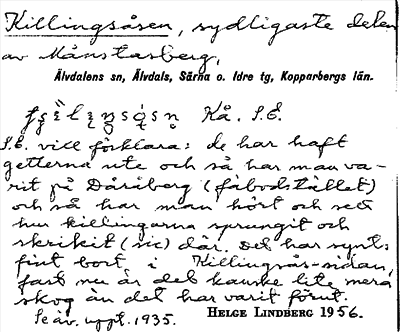 Killingsåsen, sydligaste delen
av Månstasberg.
Älvdalens sn, Älvdals, Särna o. Idre tg, Kopparbergs län.
Kå. S.E.
S.E. vill förklara: de har haft
getterna ute och så har man va-
rit på Dåråberg (fäbodstället)
och så har man hört och sett
hur killingarna sprungit och
skrikit (sic) där. Det har synts
fint bort i Killingsås-sidan,
fast nu är det kanske lite mera
skog än det har varit förut.
Se äv. uppt. 1935. HELGE LINDBERG 1956.